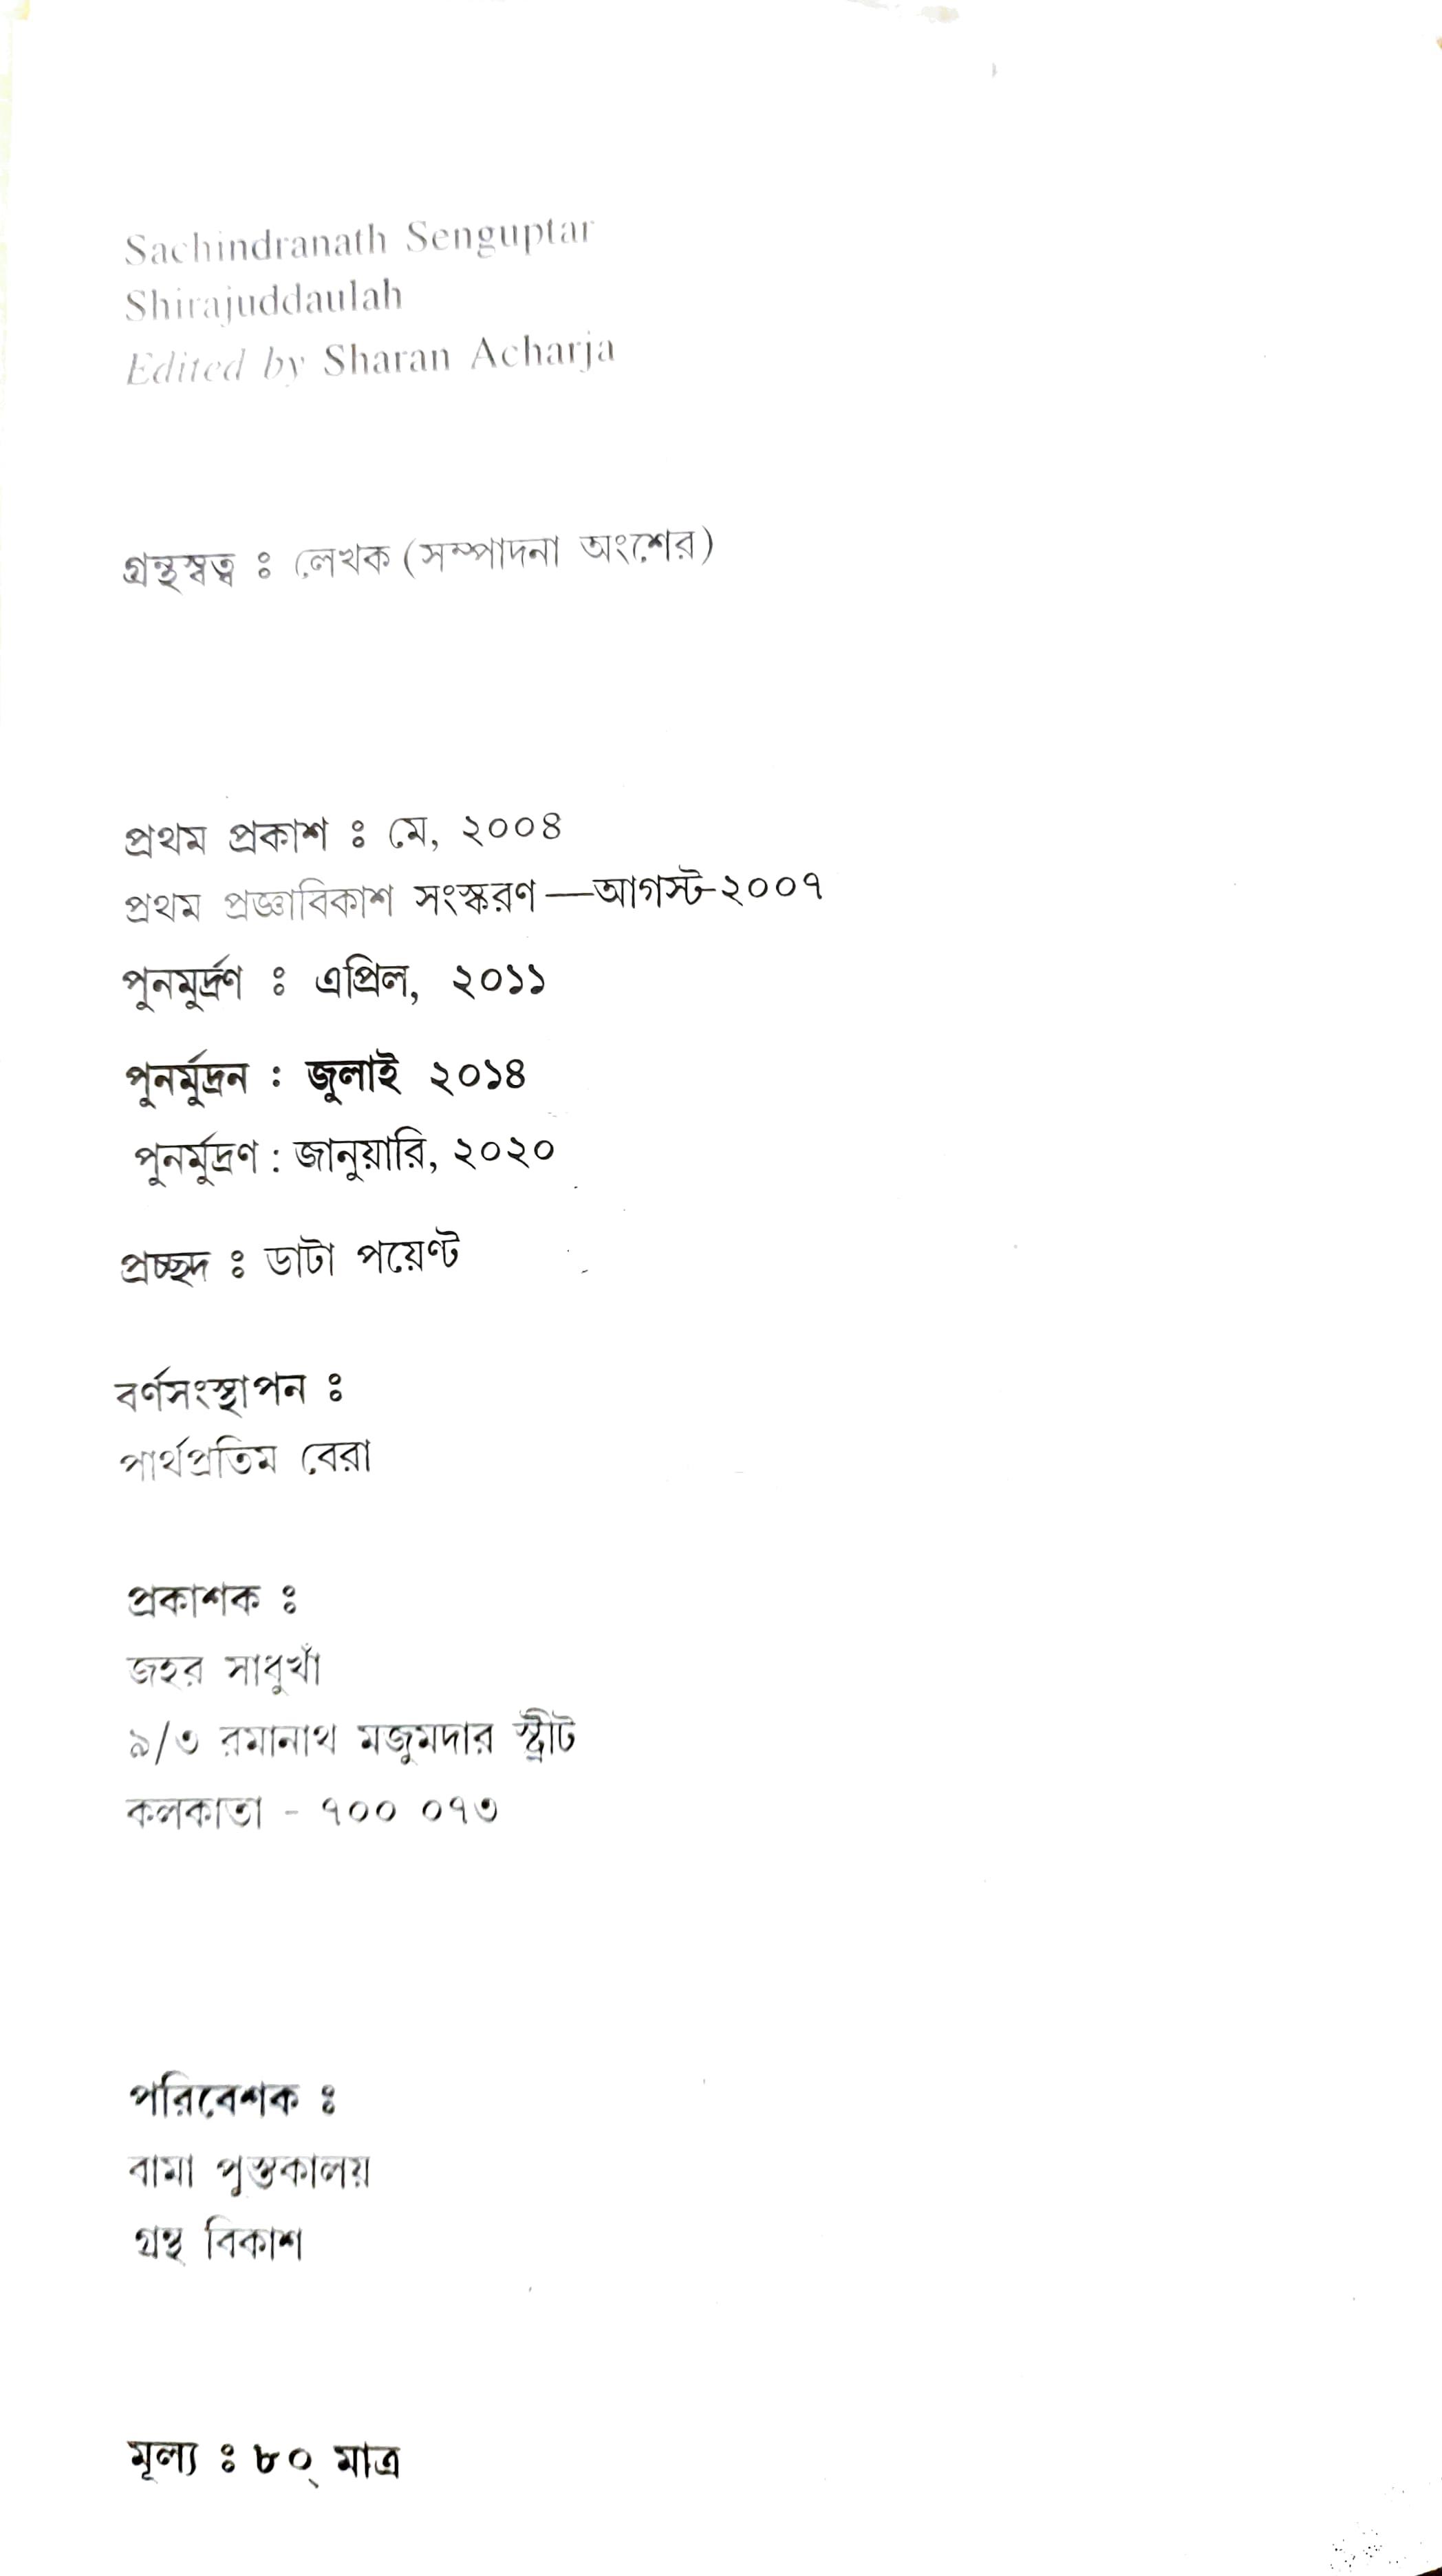 Sachindranath Senguptar
Shirajuddaulah
Edited by Sharan Acharja
গ্রন্থস্বত্ব ঃ লেখক (সম্পাদনা অংশের)
প্রথম প্রকাশ ঃ মে, ২০০৪
প্রথম প্রজ্ঞাবিকাশ সংস্করণ—আগস্ট-২০০৭
পুনমুর্দ্রণ ঃ এপ্রিল, ২০১১
পুনর্মুদ্রন : জুলাই ২০১৪
পুনর্মুদ্রণ : জানুয়ারি, ২০২০
প্রচ্ছদ ঃ ডাটা পয়েণ্ট
বর্ণসংস্থাপন ঃ
পার্থপ্রতিম বেরা
প্রকাশক ঃ
জহর সাধুখাঁ
৯/৩ রমানাথ মজুমদার স্ট্রীট
কলকাতা - ৭০০ ০৭৩
পরিবেশক ঃ
বামা পুস্তকালয়
গ্রন্থ বিকাশ
মূল্য ঃ ৮০্ মাত্র